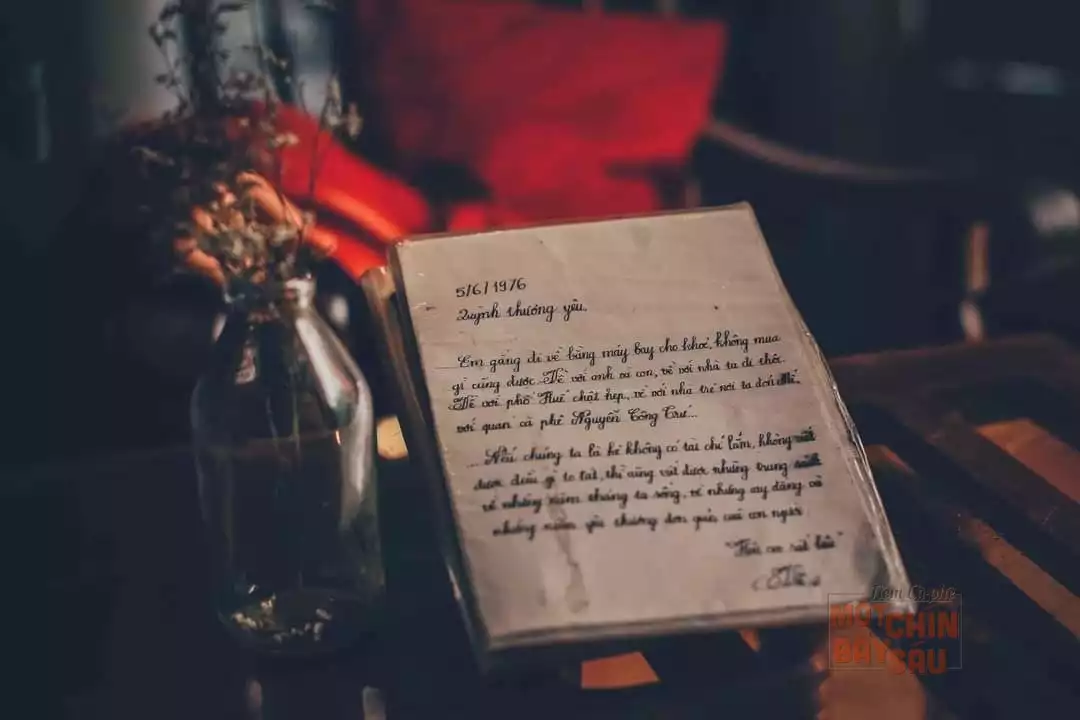 5/6/1976
Quỳnh thương yêu.
Em gắng đi về bằng máy bay cho khoẻ, không mua
gì cũng được. Về với anh và con, về với nhà ta đi thôi.
Về với phố Huế chật hẹp, về với nhà trẻ nơi ta đón Mí,
với quán cà phê Nguyễn Công Trứ...
... Nếu chúng ta là kẻ không có tài chí lắm, không viết
được điều gì to tát, thì cũng viết được những trang sách
về những năm tháng ta sống, về những cay đắng và
những niềm yêu thương đơn giản của con người
"Hôn em rất lâu"
Tiệm Cà phê
MỘT CHÍN
BẢY SÁU